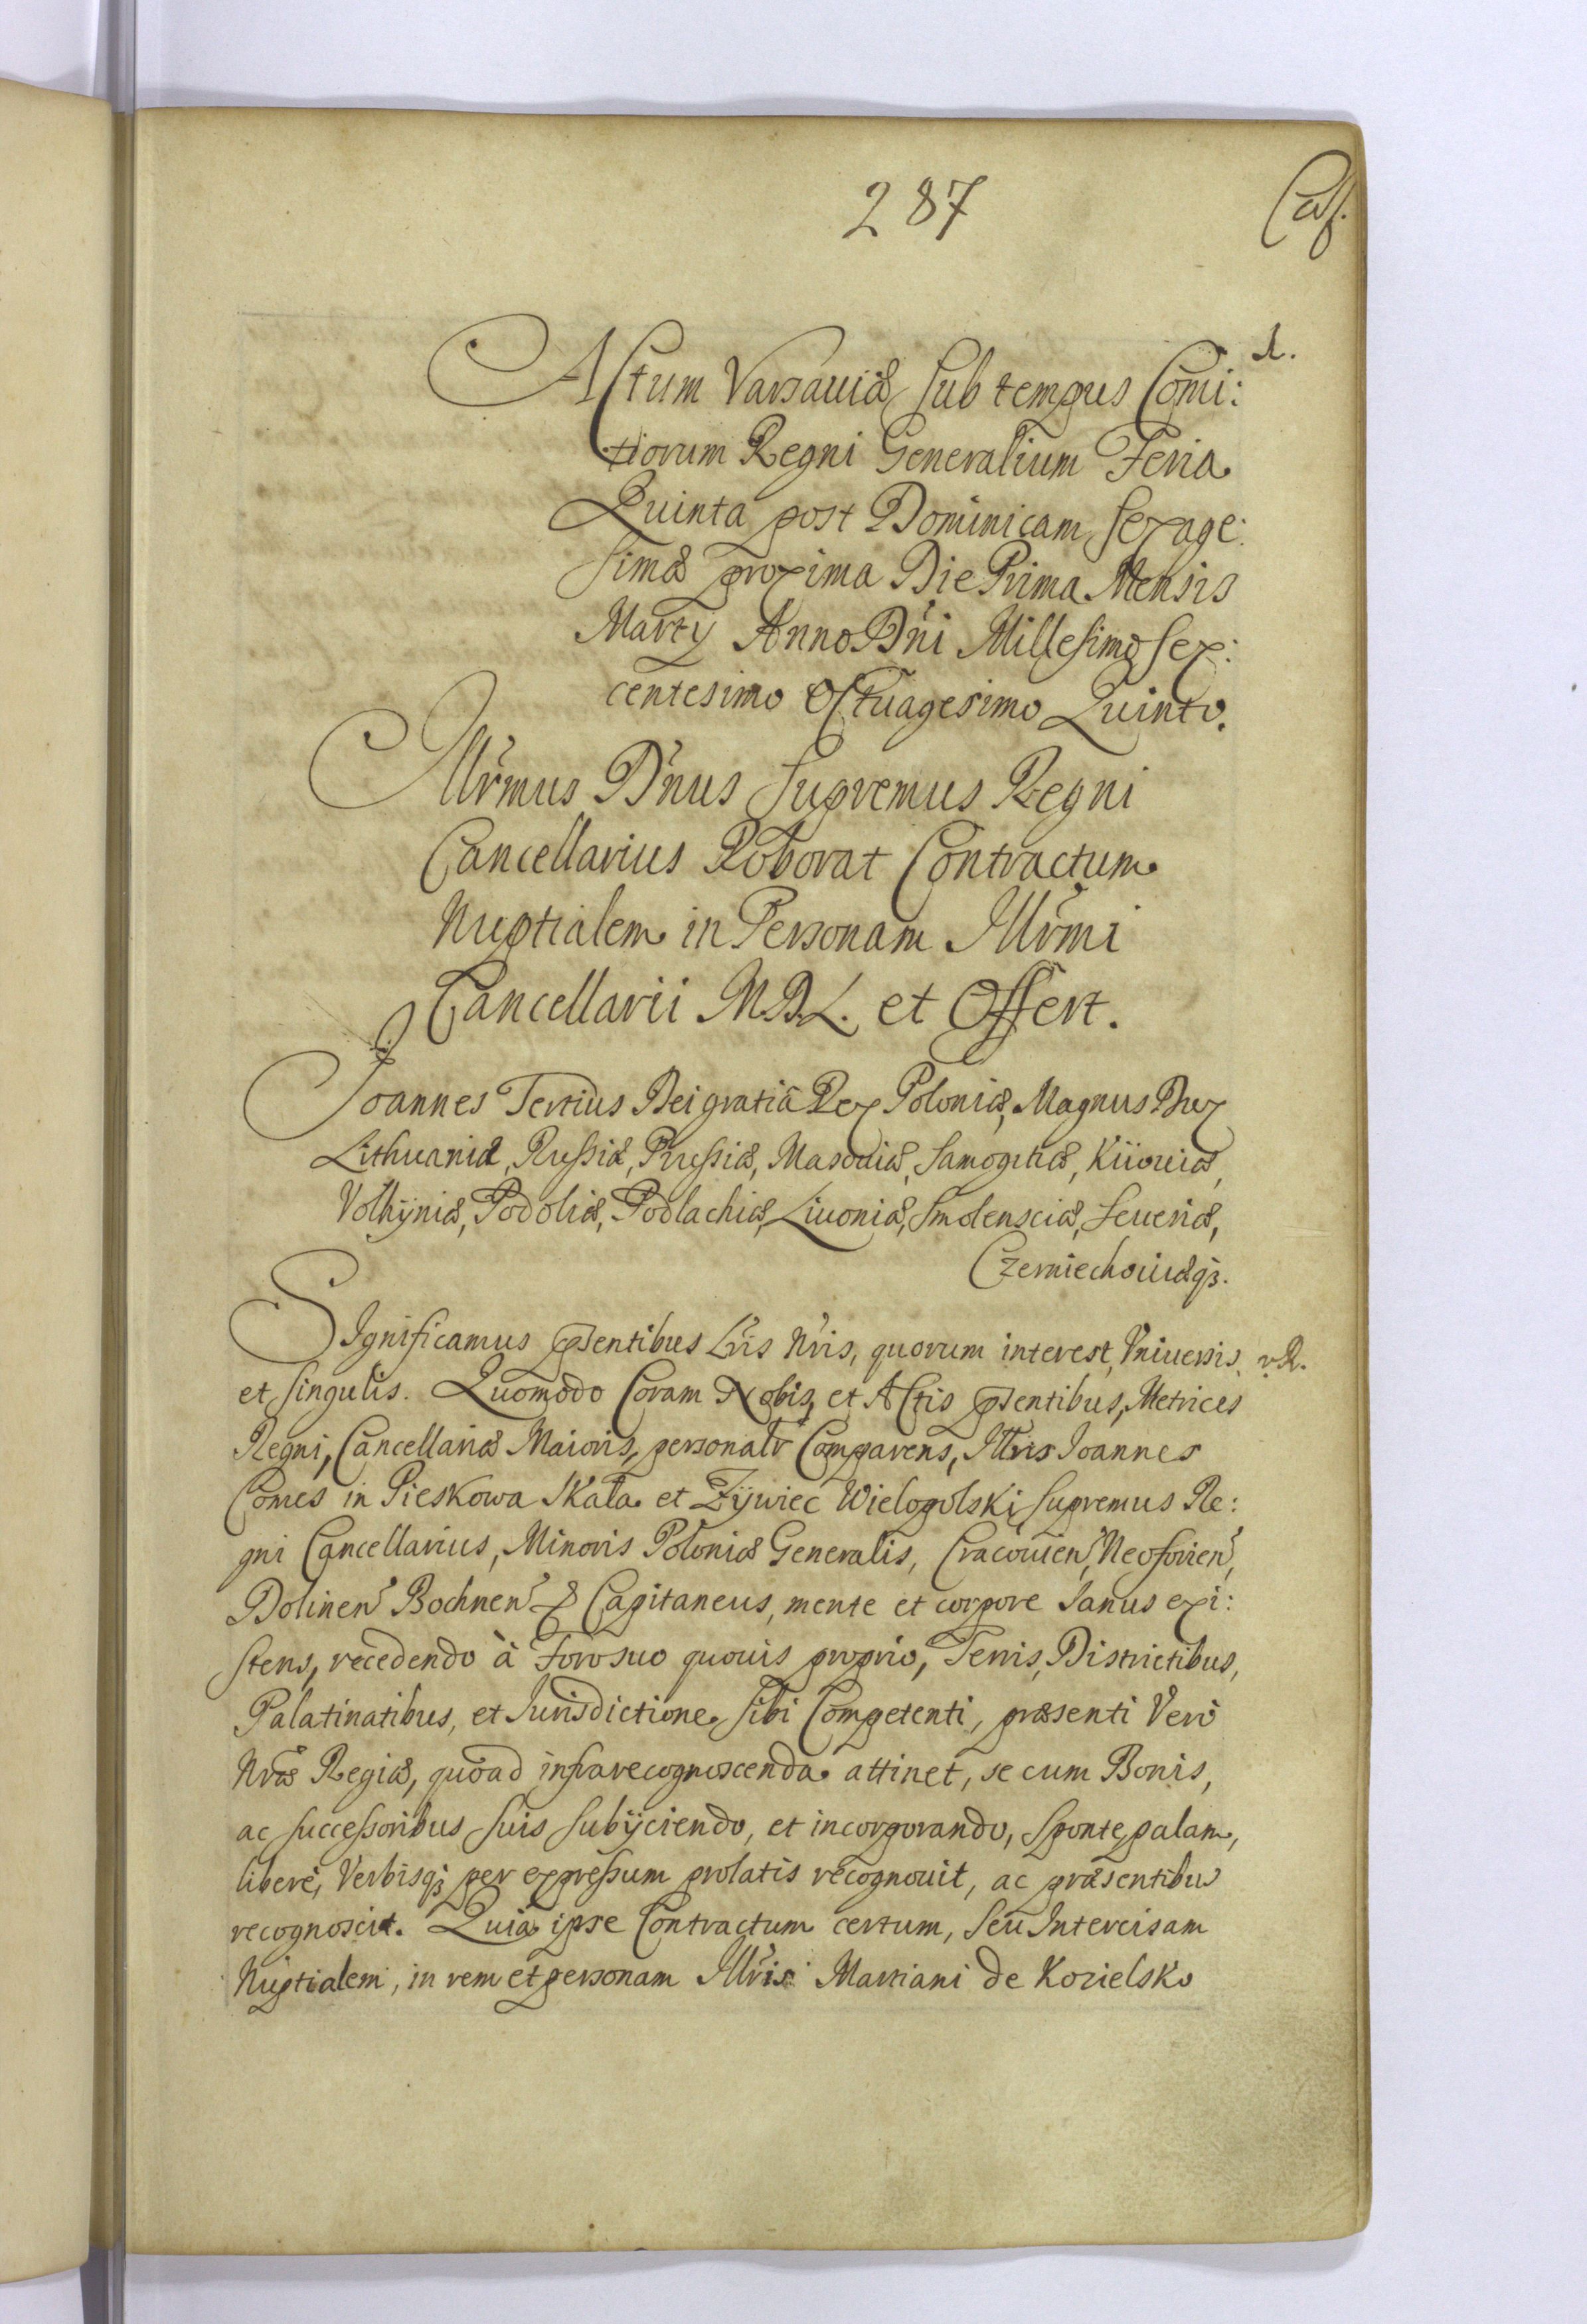 287
Cas.
A.
Actum Varsaviæ sub tempus Comi:
tiorum Regni Generalium Feria
Quinta post Dominicam sexage:
simæ proxima Die Prima Mensis
Martij Anno Dńi Millesimo sex:
centesimo Octuagesimo Quinto.
Illrmus Dńus Supremus Regni
Cancellarius Roborat Contractum
Nuptialem in Personam Illrmi
Cancellarii M.D.L. et Offert.
Joannes Tertius Dei gratiâ Rex Poloniæ, Magnus Dux
Lithuaniæ, Russiæ, Prussiæ, Masoviæ, Samogitiæ, Kiioviæ,
Volhÿniæ, Podoliæ, Podlachiæ, Livoniæ, Smolensciæ, Severiæ,
Czerniechoviæq3.
SIgnificamus pñtibus Lr̃is Nr̃is, quorum interest, Vniversis
R.
et singulis. Quomodo Coram Nobis, et Actis pñtibus, Metrices
Regni, Cancellariæ Maioris, personalr̃ Comparens, Illris Ioannes
Comes in Pieskowa Skała et Zÿwiec Wielopolski Supremus Re:
gni Cancellarius, Minoris Poloniæ Generalis, Cracovieñ, Neoforieñ,
Dolineñ Bochneñ & Capitaneus, mente et corpore sanus exi:
stens, recedendo à foro suo quovis proprio, Terris, Districtibus,
Palatinatibus, et Iurisdictione sibi Competenti, præsenti Verò
Nr̃æ Regiæ, quoad infrarecognoscenda attinet, se cum Bonis,
ac successoribus suis subÿciendo, et incorporando, sponte, palam,
liberè, Verbisq3 per expressum prolatis recognovit, ac præsentibus
recognoscit. Quia ipse Contractum certum, seu Intercisam
Nuptialem, in rem et personam Illris Martiani de Kozielsko